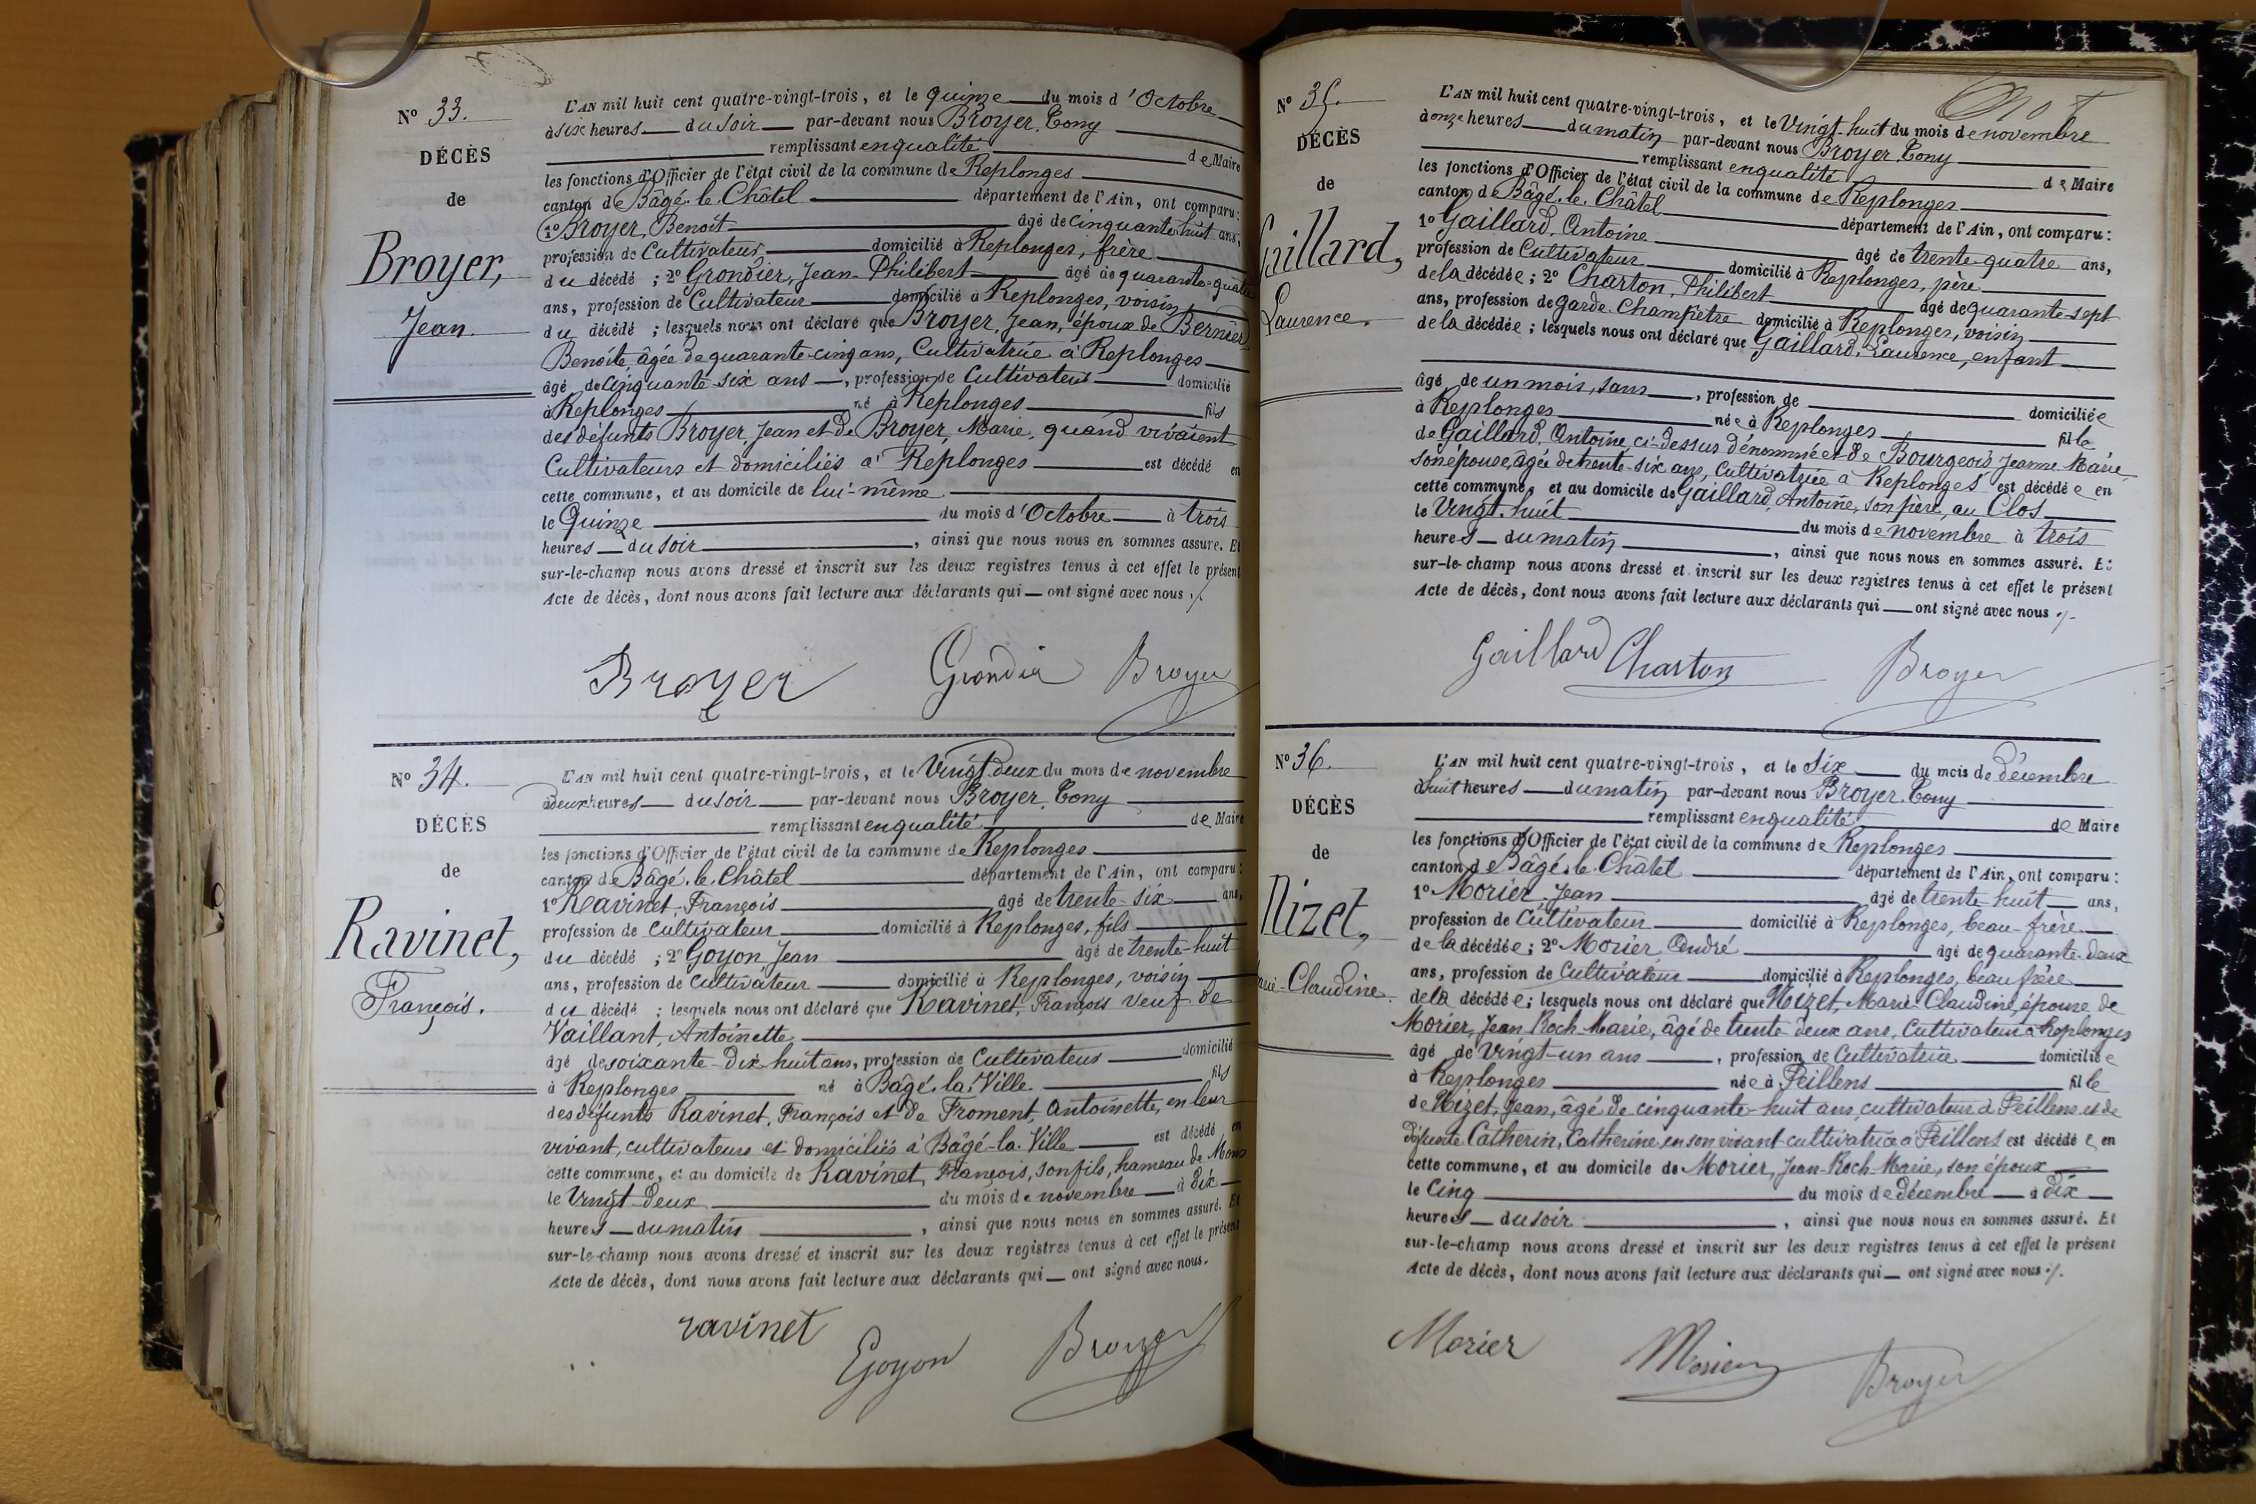 N° 33.
DÉCÈS
de
Broyer,
Jean.
L'AN mil huit cent quatre-vingt-trois, et le Quinze du mois d'Octobre
à six heures du soir par-devant nous Broyer, Tony
remplissant en qualité de Maire
les fonctions d'Officier de l'état civil de la commune de Replonges
canton de Bâgé-le-Châtel département de l'Ain, ont comparu:
1° Broyer, Benoît âgé de cinquante-huit ans,
profession de Cultivateur domicilié à Replonges, frère
du décédé ; 2° Grondier, Jean-Philibert âgé de quarante-quatre
ans, profession de Cultivateur domicilié à Replonges, voisin
du décédé ; lesquels nous ont déclaré que Broyer, Jean, époux de Bernier
Benoîte, âgée de quarante-cinq ans, Cultivatrice à Replonges
âgé de cinquante-six ans, profession de Cultivateur domicilié
à Replonges né à Replonges fils
des défunts Broyer, Jean et de Broyer, Marie, quand vivaient
Cultivateurs et domiciliés à Replonges est décédé en
cette commune, et au domicile de lui-même
le Quinze du mois d'Octobre à trois
heures du soir, ainsi que nous nous en sommes assuré. Et
sur-le-champ nous avons dressé et inscrit sur les deux registres tenus à cet effet le présent
Acte de décès, dont nous avons fait lecture aux déclarants qui ont signé avec nous ./.
Broyer Grondier Broyer
N° 34.
DÉCÈS
de
Ravinet,
François.
L'AN mil huit cent quatre-vingt-trois, et le Vingt-deux du mois de novembre
à deux heures du soir par-devant nous Broyer, Tony
remplissant en qualité de Maire
les fonctions d'Officier de l'état civil de la commune de Replonges
canton de Bâgé-le-Châtel département de l'Ain, ont comparu:
1° Ravinet, François âgé de trente-six ans,
profession de cultivateur domicilié à Replonges, fils
du décédé ; 2° Goyon, Jean âgé de trente-huit
ans, profession de cultivateur domicilié à Replonges, voisin
du décédé ; lesquels nous ont déclaré que Ravinet, François veuf de
Vaillant, Antoinette
âgé de soixante-dix-huit ans, profession de Cultivateur domicilié
à Replonges né à Bâgé-la-Ville fils
des défunts Ravinet, François et de Froment, Antoinette, en leur
vivant, cultivateurs et domiciliés à Bâgé-la-Ville est décédé en
cette commune, et au domicile de Ravinet, François, son fils, hameau de Mons
le Vingt-deux du mois de novembre à dix
heures du matin, ainsi que nous nous en sommes assuré. Et
sur-le-champ nous avons dressé et inscrit sur les deux registres tenus à cet effet le présent
Acte de décès, dont nous avons fait lecture aux déclarants qui ont signé avec nous.
ravinet Goyon Broyer
N° 35.
DÉCÈS
de
Gaillard,
Laurence.
L'AN mil huit cent quatre-vingt-trois, et le Vingt-huit du mois de novembre
à onze heures du matin par-devant nous Broyer, Tony
remplissant en qualité de Maire
les fonctions d'Officier de l'état civil de la commune de Replonges
canton de Bâgé-le-Châtel département de l'Ain, ont comparu:
1° Gaillard, Antoine âgé de trente-quatre ans,
profession de Cultivateur domicilié à Replonges, père
de la décédée ; 2° Charton, Philibert âgé de quarante-sept
ans, profession de garde Champêtre domicilié à Replonges, voisin
de la décédée ; lesquels nous ont déclaré que Gaillard, Laurence, enfant
âgé de un mois, sans, profession de domiciliée
à Replonges née à Replonges fille
de Gaillard, Antoine ci-dessus dénommé et de Bourgeois Jeanne Marie
son épouse, âgée de trente-six ans, cultivatrice à Replonges est décédée en
cette commune, et au domicile de Gaillard, Antoine, son père, au Clos
le Vingt-huit du mois de novembre à trois
heures du matin, ainsi que nous nous en sommes assuré. Et
sur-le-champ nous avons dressé et inscrit sur les deux registres tenus à cet effet le présent
Acte de décès, dont nous avons fait lecture aux déclarants qui ont signé avec nous ./.
Gaillard Charton Broyer
N° 36.
DÉCÈS
de
Nizet,
Marie-Claudine.
L'AN mil huit cent quatre-vingt-trois, et le Six du mois de décembre
à huit heures du matin par-devant nous Broyer, Tony
remplissant en qualité de Maire
les fonctions d'Officier de l'état civil de la commune de Replonges
canton de Bâgé-le-Châtel département de l'Ain, ont comparu:
1° Morier, Jean âgé de trente-huit ans,
profession de Cultivateur domicilié à Replonges, beau-frère
de la décédée ; 2° Morier André âgé de quarante-deux
ans, profession de Cultivateur domicilié à Replonges, beau frère
de la décédée ; lesquels nous ont déclaré que Nizet, Marie-Claudine, épouse de
Morier, Jean-Roch-Marie, âgé de trente-deux ans, Cultivateur à Replonges
âgé de Vingt-un ans, profession de Cultivatrice domiciliée
à Replonges née à Feillens fille
de Nizet, Jean, âgé de cinquante-huit ans, cultivateur à Feillens et de
défunte Catherin, Catherine, en son vivant cultivatrice à Feillens est décédée en
cette commune, et au domicile de Morier, Jean-Roch-Marie, son époux
le Cinq du mois de décembre à dix
heures du soir, ainsi que nous nous en sommes assuré. Et
sur-le-champ nous avons dressé et inscrit sur les deux registres tenus à cet effet le présent
Acte de décès, dont nous avons fait lecture aux déclarants qui ont signé avec nous ./.
Morier Morier Broyer